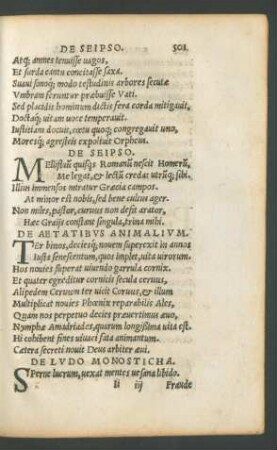 DE SEIPSO. 501.
Atq; amnes tenuisse uagos,
Et surda cantu concitasse saxa.
Suauisonoq; modo testudinis arbores secutæ
Vmbram feruntur præbuisse Vati.
Sed placidis hominum dictis fera corda mitigauit,
Doctaq; uitam uoce temperauit.
Iustitiam docuit, cœtu quoq; congregauit uno,
Moresq; agrestes expoliuit Orpheus.
DE SEIPSO.
MEllifluũ quisq̃s Romanũ nescit Homerũ,
Me legat, & lectũ credat utrũq; sibi.
Illius immensos miratur Græcia campos.
At minor est nobis, sed bene cultus ager.
Non miles, pastor, curuus non desit arator,
Hæc Graijs constant singula, trina mihi.
DE AETATIBVS ANIMALIVM.
TEr binos, deciesq; nouem superexit in annos
Iusta senescentum, quos implet, uita uirorum.
Hos nouies superat uiuendo garrula cornix.
Et quater egreditur cornicis secula ceruus,
Alipedem Ceruum ter uicit Coruus, & illum
Multiplicat nouies Phœnix reparabilis Ales,
Quam nos perpetuo decies præuertimus æuo,
Nymphæ Amadriades, quarum longissima uita est.
Hi cohibent fines uiuaci fata animantum.
Cætera secreti nouit Deus arbiter æui.
DE LVDO MONOSTICHA.
SPerne lucrum, uexat mentes uesana libido.
Ii iij Fraude